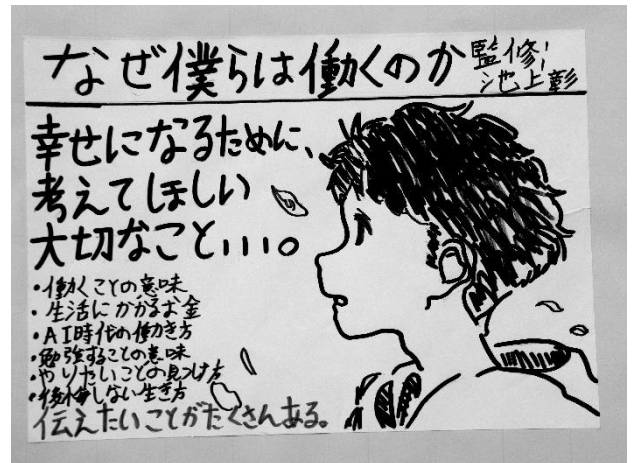 なぜ僕らは働くのか
監修:
池上彰
幸せになるために、
考えてほしい
大切なこと…。
・働くことの意味
・生活にかかるお金
・AI時代の働き方
・勉強することの意味
・やりたいことの見つけ方
・後悔しない生き方
伝えたいことがたくさんある。